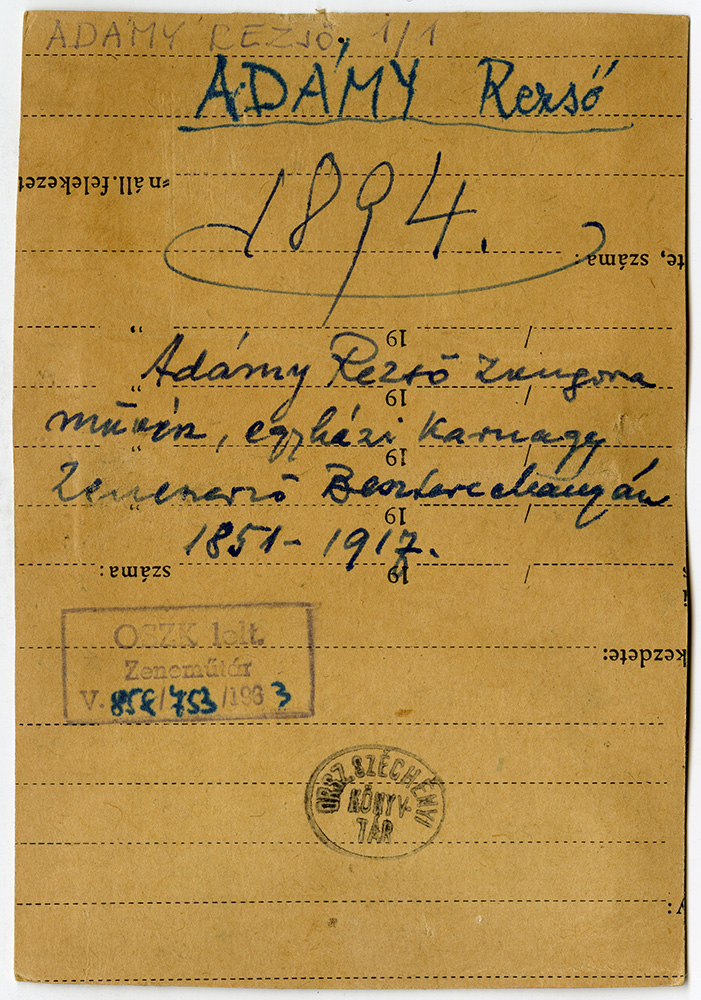 ADÁMY REZSŐ, 1/1
ADÁMY Rezső
n áll. felekezet
1894.
te, száma:
/ 19 "
Adámy Rezső zongora
/ 19 "
művész, egyházi karnagy
/ 19 "
Zeneszerző Besztercebányán
/ 19 "
1851-1917.
/ 19 száma:
OSZK lelt.
kezdete:
Zeneműtár
V. 858/753/1963
ORSZ. SZÉCHÉNYI
KÖNYV-
TÁR
y: